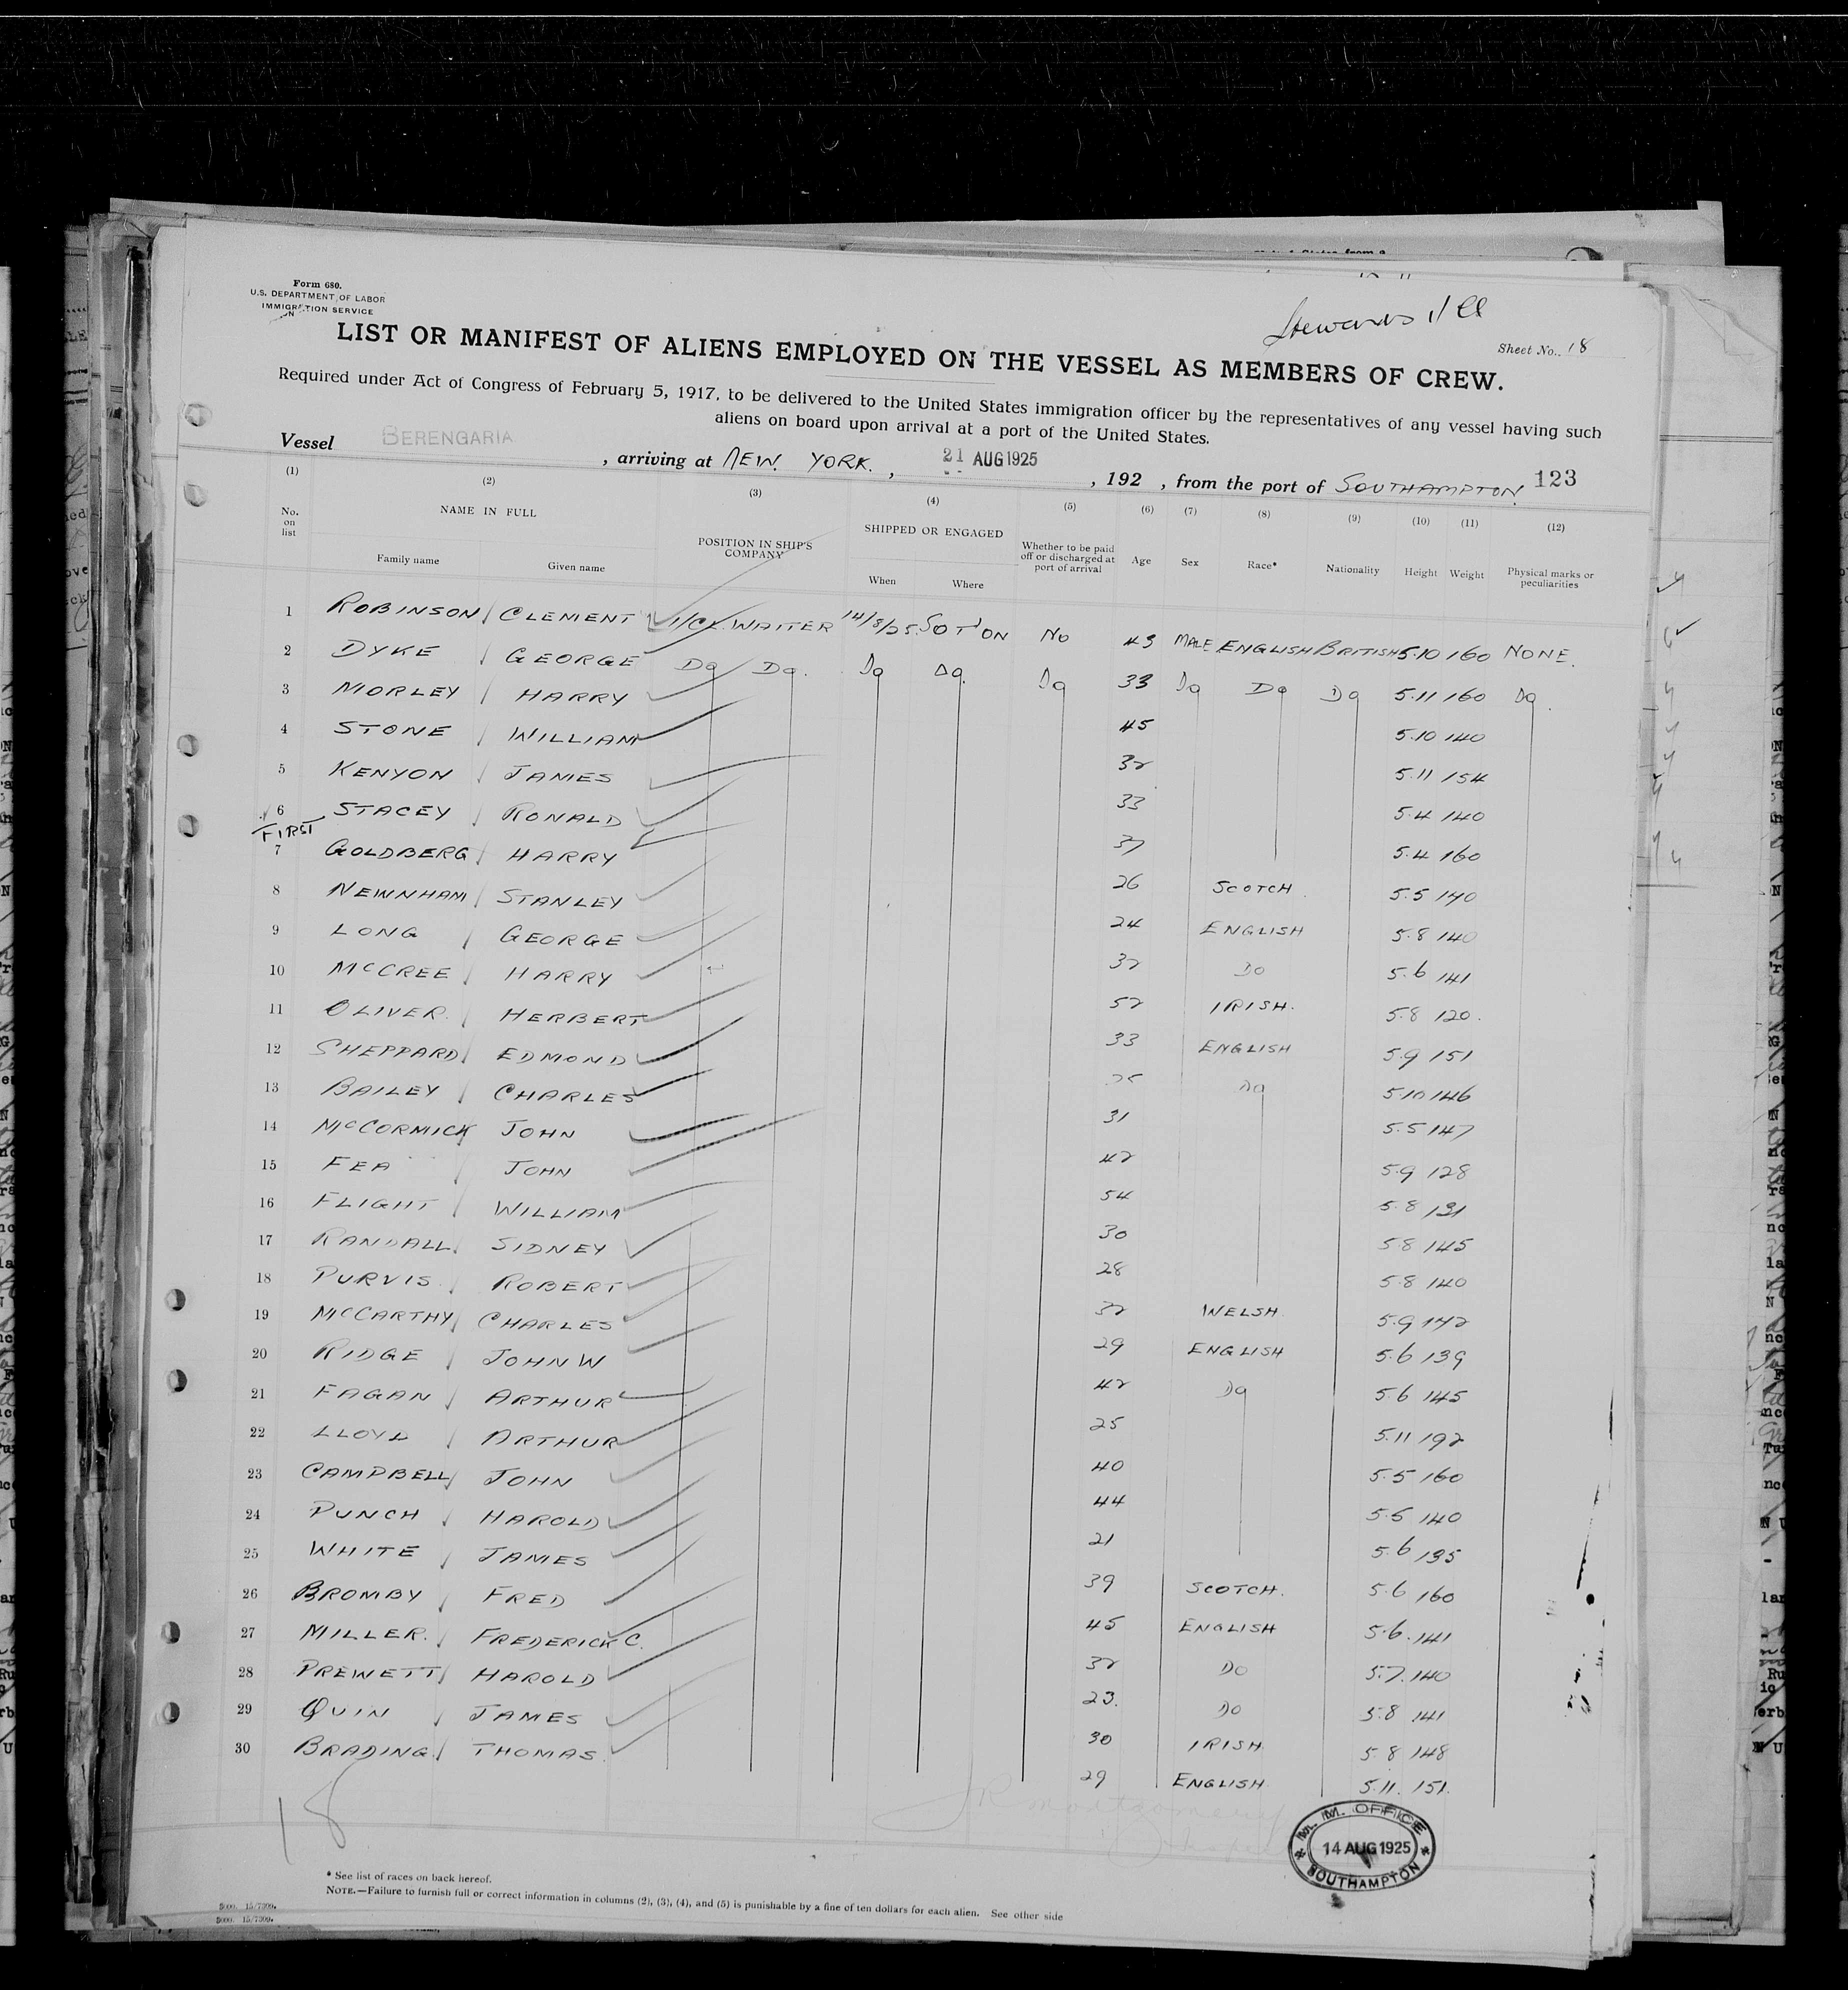 Form 680.
U.S. DEPARTMENT OF LABOR
IMMIGRATION SERVICE
Stewards
Sheet No. 18
LIST OR MANIFEST OF ALIENS EMPLOYED ON THE VESSEL AS MEMBERS OF CREW.
Required under Act of Congress of February 5, 1917, to be delivered to the United States immigration officer by the representatives of any vessel having such
aliens on board upon arrival at a port of the United States.
Vessel BERENGARIA, arriving at NEW YORK., 21 AUG 1925, 192 , from the port of SOUTHAMPTON. 123
(1) (2) (3) (4) (5) (6) (7) (8) (9) (10) (11) (12)
No. on list NAME IN FULL Family name Given name POSITION IN SHIP'S COMPANY SHIPPED OR ENGAGED When Where Whether to be paid off or discharged at port of arrival Age Sex Race* Nationality Height Weight Physical marks or peculiarities
1 ROBINSON CLEMENT 1/CL. WAITER 14/8/25. SOT'ON No 43 MALE ENGLISH BRITISH 5.10 160 NONE.
2 DYKE GEORGE Do Do. Do Do. Do 33 Do Do Do 5.11 160 Do.
3 MORLEY HARRY 45 5.10 140
4 STONE WILLIAM 32 5.11 154
5 KENYON JAMES 33 5.4 140
6 STACEY RONALD 37 5.4 160
FIRST
7 GOLDBERG HARRY 26 SCOTCH. 5.5 140
8 NEWNHAM STANLEY 24 ENGLISH 5.8 140
9 LONG GEORGE 32 DO 5.6 141
10 McCREE HARRY 52 IRISH. 5.8 120.
11 OLIVER. HERBERT 33 ENGLISH 5.9 151
12 SHEPPARD EDMOND Do 5.10 146
13 BAILEY CHARLES 31 5.5 147
14 McCORMICK JOHN 42 5.9 128
15 FEA JOHN 54 5.8 131
16 FLIGHT WILLIAM 30 5.8 145
17 RANDALL. SIDNEY 28 5.8 140
18 PURVIS. ROBERT 32 WELSH. 5.9 142
19 McCARTHY CHARLES 29 ENGLISH 5.6 139
20 RIDGE JOHN W 42 Do 5.6 145
21 FAGAN ARTHUR 25 5.11 192
22 LLOYD ARTHUR 40 5.5 160
23 CAMPBELL JOHN 44 5.5 140
24 PUNCH HAROLD 21 5.6 135
25 WHITE JAMES 39 SCOTCH. 5.6 160
26 BROMBY FRED 45 ENGLISH 5.6. 141
27 MILLER. FREDERICK C. 32 DO 5.7. 140
28 PREWETT HAROLD 23. DO 5.8 141
29 QUIN JAMES 30 IRISH. 5.8 148
30 BRADING. THOMAS. 29 ENGLISH. 5.11. 151.
18
JR Montgomery
M. M. OFFICE
14 AUG 1925
SOUTHAMPTON
* See list of races on back hereof.
NOTE.—Failure to furnish full or correct information in columns (2), (3), (4), and (5) is punishable by a fine of ten dollars for each alien. See other side